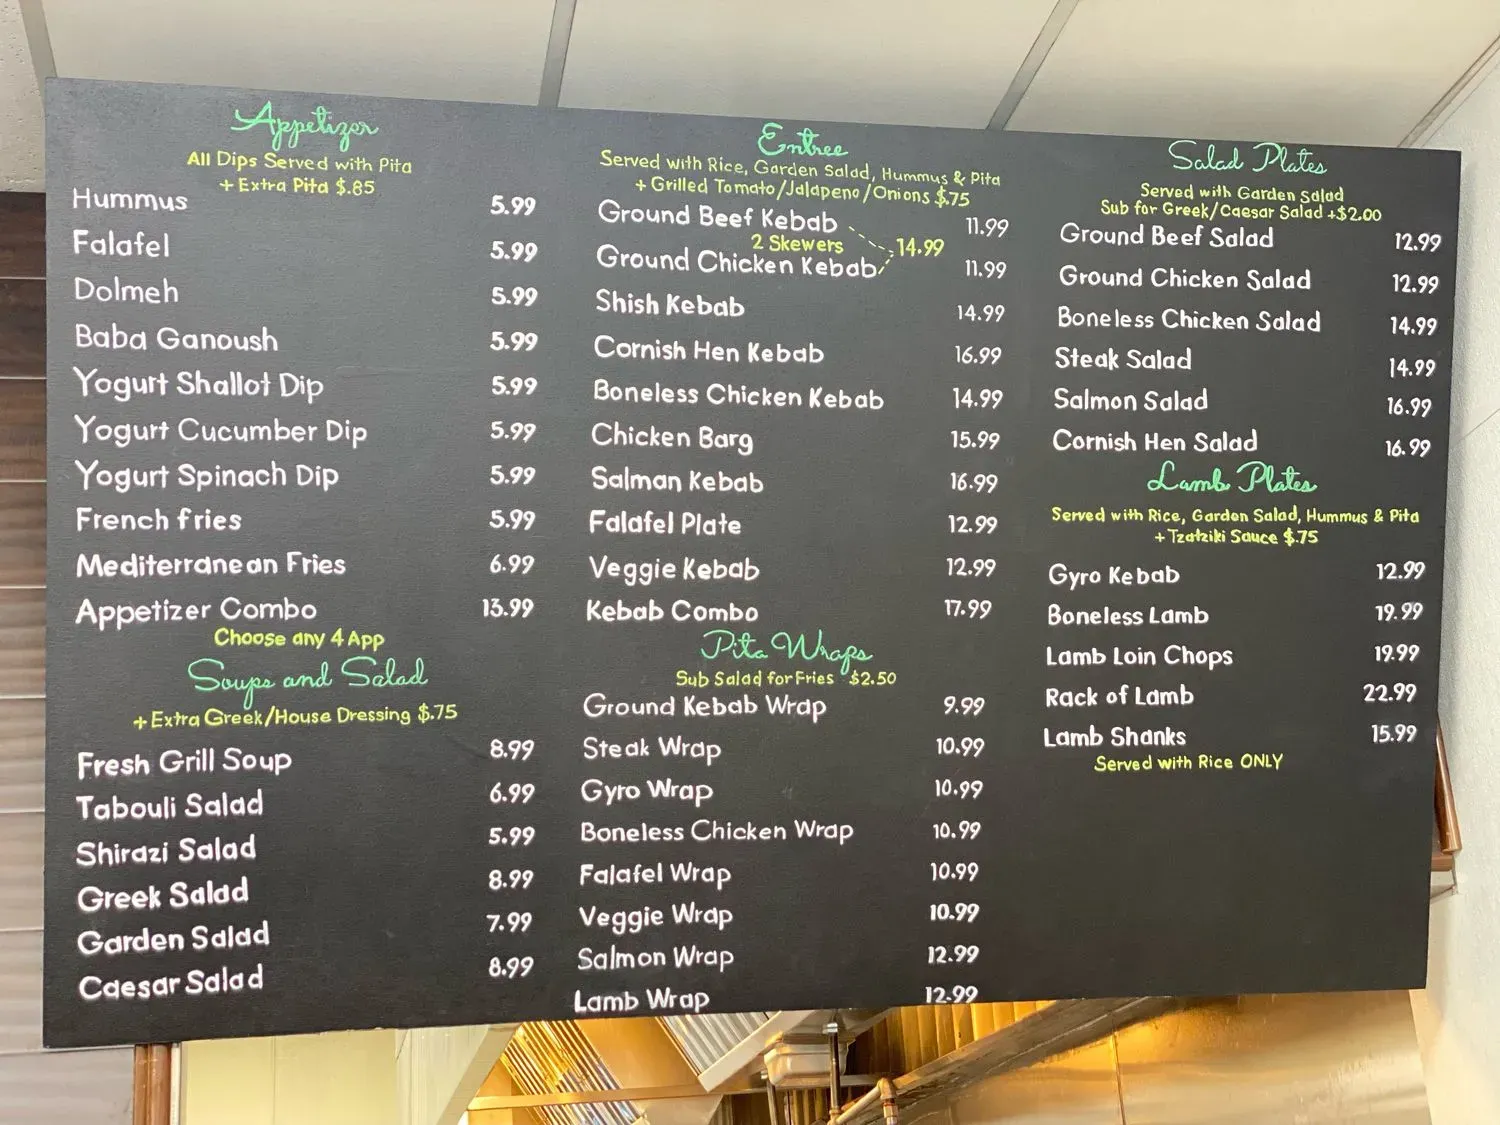 Appetizer
All Dips Served with Pita
+ Extra Pita $.85
Hummus 5.99
Falafel 5.99
Dolmeh 5.99
Baba Ganoush 5.99
Yogurt Shallot Dip 5.99
Yogurt Cucumber Dip 5.99
Yogurt Spinach Dip 5.99
French fries 5.99
Mediterranean Fries 6.99
Appetizer Combo 13.99
Choose any 4 App
Soups and Salad
+ Extra Greek/House Dressing $.75
Fresh Grill Soup 8.99
Tabouli Salad 6.99
Shirazi Salad 5.99
Greek Salad 8.99
Garden Salad 7.99
Caesar Salad 8.99
Entree
Served with Rice, Garden Salad, Hummus & Pita
+ Grilled Tomato/Jalapeno/Onions $.75
Ground Beef Kebab 11.99
2 Skewers 14.99
Ground Chicken Kebab 11.99
Shish Kebab 14.99
Cornish Hen Kebab 16.99
Boneless Chicken Kebab 14.99
Chicken Barg 15.99
Salman Kebab 16.99
Falafel Plate 12.99
Veggie Kebab 12.99
Kebab Combo 17.99
Pita Wraps
Sub Salad for Fries $2.50
Ground Kebab Wrap 9.99
Steak Wrap 10.99
Gyro Wrap 10.99
Boneless Chicken Wrap 10.99
Falafel Wrap 10.99
Veggie Wrap 10.99
Salmon Wrap 12.99
Lamb Wrap 12.99
Salad Plates
Served with Garden Salad
Sub for Greek/Caesar Salad +$2.00
Ground Beef Salad 12.99
Ground Chicken Salad 12.99
Boneless Chicken Salad 14.99
Steak Salad 14.99
Salmon Salad 16.99
Cornish Hen Salad 16.99
Lamb Plates
Served with Rice, Garden Salad, Hummus & Pita
+ Tzatziki Sauce $.75
Gyro Kebab 12.99
Boneless Lamb 19.99
Lamb Loin Chops 19.99
Rack of Lamb 22.99
Lamb Shanks 15.99
Served with Rice ONLY